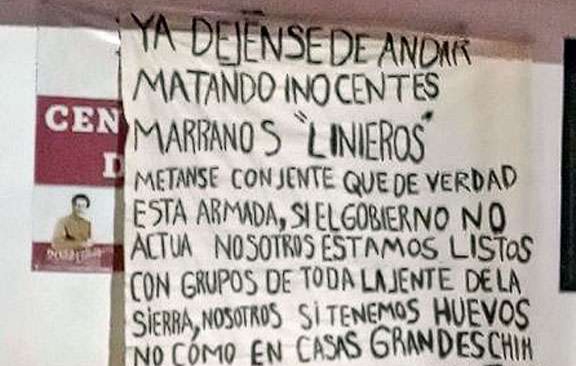 YA DEJENSE DE ANDAR
MATANDO INOCENTES
MARRANOS "LINIEROS"
METANSE CON JENTE QUE DE VERDAD
ESTA ARMADA, SI EL GOBIERNO NO
ACTUA NOSOTROS ESTAMOS LISTOS
CON GRUPOS DE TODA LA JENTE DE LA
SIERRA, NOSOTROS SI TENEMOS HUEVOS
NO CÓMO EN CASAS GRANDES CHIH
CEN
D